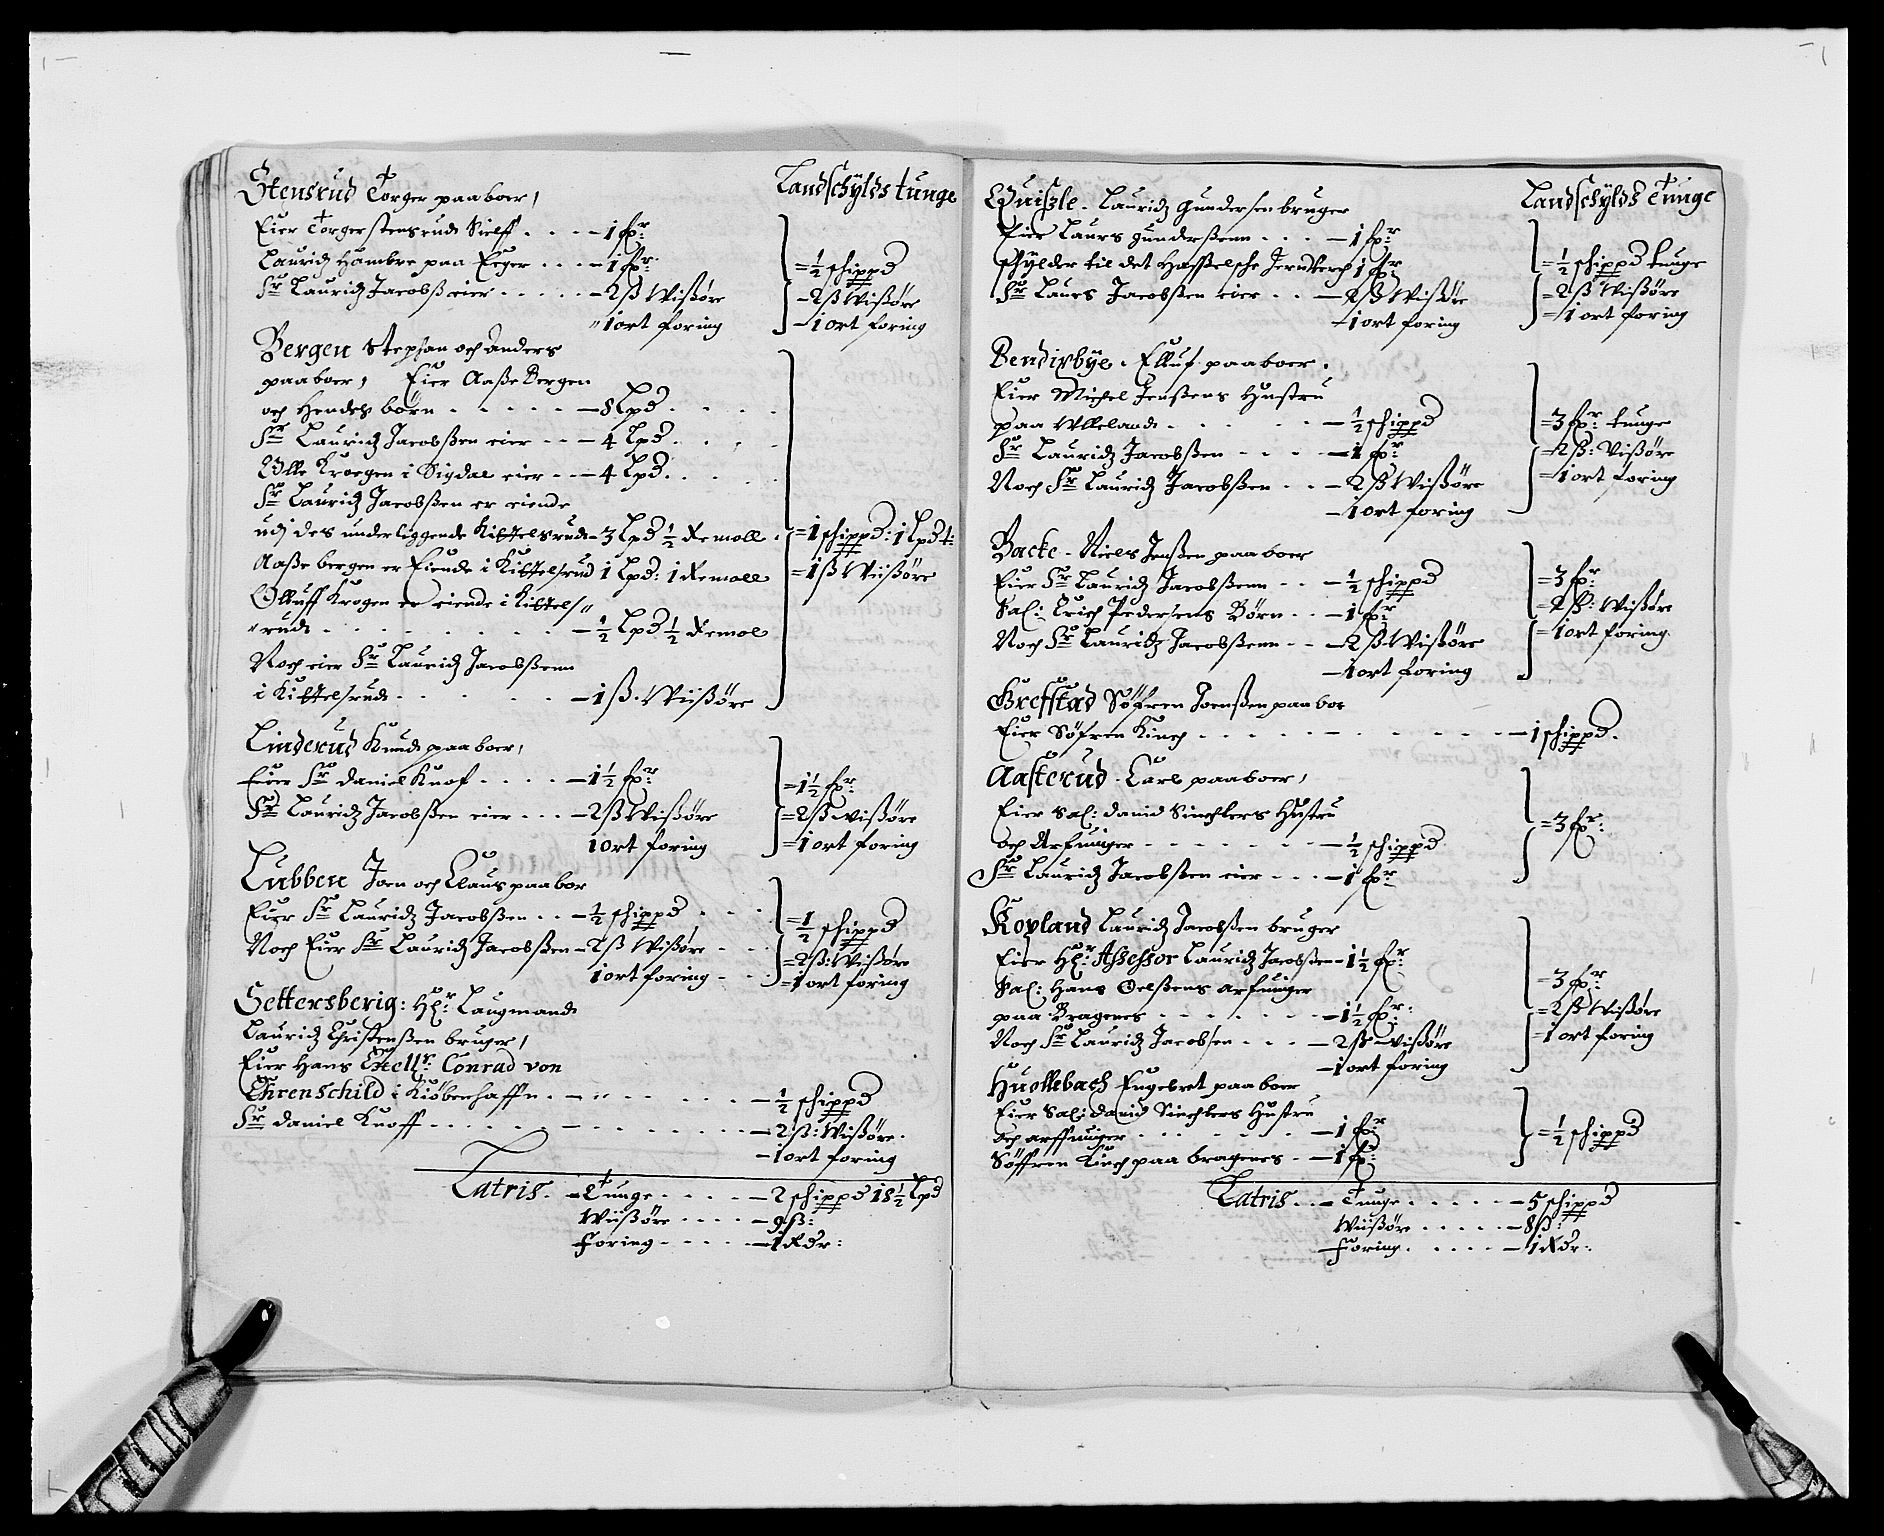 Landschÿlds tunge
Stensrud Torger paaboer,
Eier Torger stensrud Sielff - - - - 1 fr:
Lauridz Hambre paa Eeger - - - 1 fr:
Sr Lauridz Jacobs: eier - - - - - 2 ß Wißöre
"1 ort foring
= ½ schippd
- 2 ß Wißöre
- 1 ort foring
Bergen Stephan och Anders
paaboer, Eier Aaße Bergen
och Hendes börn - - - - - 8 Lpd - - - -
Sr Lauridz Jacobßen eier - - - 4 Lpd - - - -
Olle Kroegen i Sigdal eier - - 4 Lpd - - - -
Sr Lauridz Jacobßen er eiende
udj des underliggende Kittelsrud - 3 Lpd ½ Remoll
Aaße bergen er Eiende i Kittelsrud 1 Lpd: 1 Remoll
Olluff Krogen er eiende i Kittels"
"rud - - - - - - - - ½ Lpd ½ Remol
Noch eier Sr Lauridz Jacobßenn
i Kittelsrud - - - - - 1 ß. Wiißöre
= 1 schippd: 1 Lpd t:
= 1 ß Wiißöre
Linderud Knud paaboer,
Eier Sr Daniel Knof - - - - 1½ fr:
Sr Lauridz Jacobßen eier - - - 2 ß Wißöre
1 ort foring
= 1½ fr:
= 2 ß wißöre
= 1 ort foring
Lubben Joen och Claus paabor
Eier Sr Lauridz Jacobßen - - - ½ schippd - - -
Noch Eier Sr Lauridz Jacobßen - 2 ß Wißöre - - -
1 ort foring - - -
= ½ schippd
= 2 ß: Wißöre
= 1 ort foring
Settersberig: Hr: Laugmand
Lauridz Christenßen bruger,
Eier Hans Exellr: Conrad von
Ehrenschild i Kiöbenhaffn - - - - - - ½ schippd
Sr Daniel Knoff - - - - - - - - - - 2 ß: Wißöre.
- 1 ort foring
Latris. - Tunge - - - - 2 schippd 18½ Lpd
Wiißöre - - - - 9 ß:
Foring - - - - - 1 Rdr:
Landschÿlds Tunge
Quißle - Lauridz Gundersen bruger
Eier Laurs Gunderßenn - - - 1 fr:
schÿlder til det Haßelsche Jernverch 1 fr:
Sr Laurs Jacobßen eier - - - 2 ß Wißöre
- 1 ort foring
= ½ schippd tunge
= 2 ß Wißöre
= 1 ort foring
Bendixbÿe. Elluf paaboer.
Eier Michel Jenßens Hustru
paa Ulleland - - - - - ½ schippd
Sr Lauridz Jacobßen - - - - 1 fr:
Noch Sr Lauridz Jacobßen - - - 2 ß Wißöre
- 1 ort foring
= 3 fr: tunge
- 2 ß: Wißöre
= 1 ort foring
Backe - Niels Jenßen paaboer
Eier Sr Lauridz Jacobßenn - - - ½ schippd
Sal: Erich Pedersens Börn - - - 1 fr:
Noch Sr Lauridz Jacobßenn - - - 2 ß Wißöre
- 1 ort foring
= 3 fr:
= 2 ß: Wißöre
= 1 ort foring
Grefstad Söfren Joenßen paaboe
Eier Söfren Kinch - - - - - - - - - 1 schippd.
Aasterud - Carl paaboer,
Eier Sal: David Sinchlers Hustru
och Arfvinger - - - - - - ½ schippd
Sr Lauridz Jacobßen eier - - - 1 fr:
= 3 fr:
Kopland Lauridz Jacobßen bruger
Eier Hr: Assessor Lauridz Jacobßen - 1½ fr:
Sal: Hans Oelßens arfvinger
paa Bragenes - - - - - - - 1½ fr:
Noch Sr Lauridz Jacobsen - - - 2 ß Wißöre
- 1 ort foring
= 3 fr:
= 2 ß Wißöre
- 1 ort foring
Huollebach Engebret paaboer
Eier Sal: David Sinchlers Hustru
och arffvinger - - - - - - 1 fr:
Söffren Kinch paa bragenes - - 1 fr:
= ½ schippd
Latris - - - Tunge - - - - - 5 schippd
Wiißöre - - - - - 8 ß:
Foring - - - - - 1 Rdr: